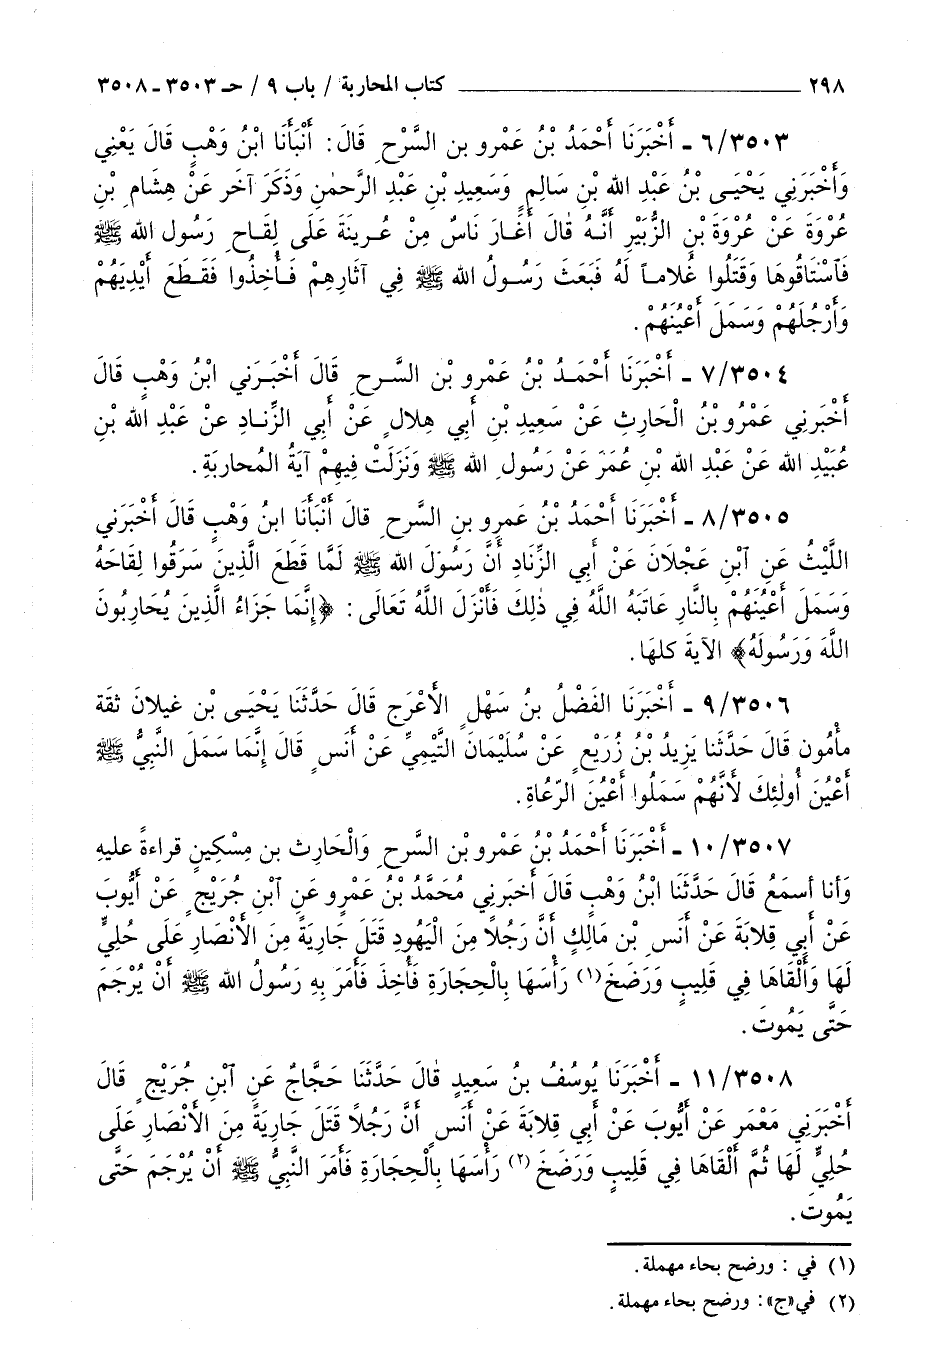 ٢٩٨ ــــــــــــــــــــ كتاب المحاربة / باب ٩ / حـ ٣٥٠٣ ـ ٣٥٠٨
٦/٣٥٠٣ ـ أَخْبَرَنَا أَحْمَدُ بْنُ عَمْرو بن السَّرْحِ قَالَ: أَنْبَأَنَا ابْنُ وَهْبٍ قَالَ يَعْنِي
وَأَخْبَرَنِي يَحْيَى بْنُ عَبْدِ الله بْنِ سَالِمٍ وَسَعِيدِ بْنِ عَبْدِ الرَّحمٰنِ وَذَكَرَ آخَر عَنْ هِشَامِ بْنِ
عُرْوَةَ عَنْ عُرْوَةَ بْنِ الزُّبَيْرِ أَنَّهُ قَالَ أَغَارَ نَاسٌ مِنْ عُرينَةَ عَلَى لِقَاحِ رَسُولِ الله ﷺ
فَاسْتَاقُوهَا وَقَتَلُوا غُلاماً لَهُ فَبَعَثَ رَسُولُ الله ﷺ فِي آثَارِهِمْ فَأُخِذُوا فَقَطَعَ أَيْدِيَهُمْ
وَأَرْجُلَهُمْ وَسَمَلَ أَعْيُنَهُمْ.
٧/٣٥٠٤ ـ أَخْبَرَنَا أَحْمَدُ بْنُ عَمْرِو بْنِ السَّرحِ قَالَ أَخْبَرَني ابْنُ وَهْبٍ قَالَ
أَخْبَرنِي عَمْرُو بْنُ الْحَارِثِ عَنْ سَعِيدِ بْنِ أَبِي هِلالٍ عَنْ أَبِي الزِّنَادِ عنْ عَبْدِ الله بْنِ
عُبَيْدِ الله عَنْ عَبْدِ الله بْنِ عُمَرَ عَنْ رَسُولِ الله ﷺ وَنَزَلَتْ فِيهِمْ آيَةُ المُحاربَةِ.
٨/٣٥٠٥ ـ أَخْبَرَنَا أَحْمَدُ بْنُ عَمرِو بنِ السَّرحِ قالَ أَنْبَأَنَا ابنُ وَهْبٍ قَالَ أَخْبَرَني
اللَّيْثُ عَنِ ابْنِ عَجْلَانَ عَنْ أَبي الزِّنَادِ أَنَّ رَسُولَ الله ﷺ لَمَّا قَطَعَ الَّذِينَ سَرَقُوا لِقَاحَهُ
وَسَمَلَ أَعْيُنَهُمْ بِالنَّارِ عَاتَبَهُ اللَّهُ فِي ذٰلِكَ فَأَنْزَلَ اللَّهُ تَعَالَى: ﴿إِنَّمَا جَزَاءُ الَّذِينَ يُحَارِبُونَ
اللَّهَ وَرَسُولَهُ﴾ الآيةَ كلهَا.
٩/٣٥٠٦ ـ أَخْبَرَنَا الفَضْلُ بنُ سَهْلٍ الأَعْرَج قَالَ حَدَّثَنَا يَحْيَى بْن غيلانَ ثقَة
مأْمُون قَالَ حَدَّثَنا يَزِيدُ بْنُ زُرَيْعٍ عَنْ سُلَيْمَانَ التَّيْمِيِّ عَنْ أَنَسٍ قَالَ إِنَّمَا سَمَلَ النَّبِيُّ ﷺ
أَعْيُنَ أُولٰئِكَ لأَنَّهُمْ سَمَلُوا أَعْيُنَ الرّعَاةِ.
١٠/٣٥٠٧ ـ أَخْبَرَنَا أَحْمَدُ بْنُ عَمْرو بْنِ السَّرحِ وَالْحَارِث بن مِسْكِينٍ قراءَةً عليهِ
وَأنا أسمَعُ قَالَ حَدَّثَنَا ابْنُ وَهْبٍ قَالَ أَخبَرنِي مُحَمَّدُ بْنُ عَمْرٍو عَنِ ابْنِ جُرَيْجٍ عَنْ أَيُّوبَ
عَنْ أَبِي قِلابَةَ عَنْ أَنَسِ بْنِ مَالِكٍ أَنَّ رَجُلاً مِنَ الْيَهُودِ قَتَلَ جَارِيَةً مِنَ الأَنْصَارِ عَلَى حُلِيٍّ
لَهَا وَأَلْقَاهَا فِي قَلِيبٍ وَرَضَخَ(١) رَأْسَهَا بِالْحِجَارَةِ فَأُخِذَ فَأَمَرَ بِهِ رَسُولُ الله ﷺ أَنْ يُرْجَمَ
حَتَّى يَمُوتَ.
١١/٣٥٠٨ ـ أَخْبَرَنَا يُوسُفُ بنُ سَعِيدٍ قَالَ حَدَّثَنَا حَجَّاجٌ عَنِ ابْنِ جُرَيْجٍ قَالَ
أَخْبَرَنِي مَعْمَر عَنْ أَيُّوبَ عَنْ أَبِي قِلابَةَ عَنْ أَنَسٍ أَنَّ رَجُلاً قَتَلَ جَارِيَةً مِنَ الأَنْصَارِ عَلَى
حُلِيٍّ لَهَا ثُمَّ أَلْقَاهَا فِي قَلِيبٍ وَرَضَخَ(٢) رَأْسَهَا بِالْحِجَارَةِ فَأَمَرَ النَّبِيُّ ﷺ أَنْ يُرْجَمَ حَتَّى
يَمُوتَ.
(١) في : ورضح بحاء مهملة.
(٢) في «ج»: ورضح بحاء مهملة.